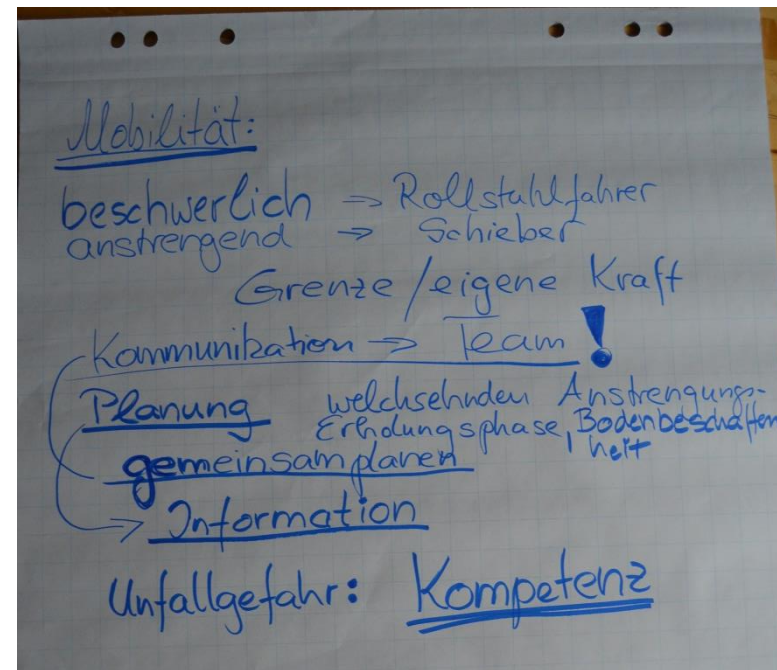 Mobilität:
beschwerlich → Rollstuhlfahrer
anstrengend → Schieber
Grenze / eigene Kraft
Kommunikation → Team !
Planung welchsehnden Anstrengungs-
Erholungsphase, Bodenbeschaffen
heit
gemeinsam planen
→ Information
Unfallgefahr: Kompetenz